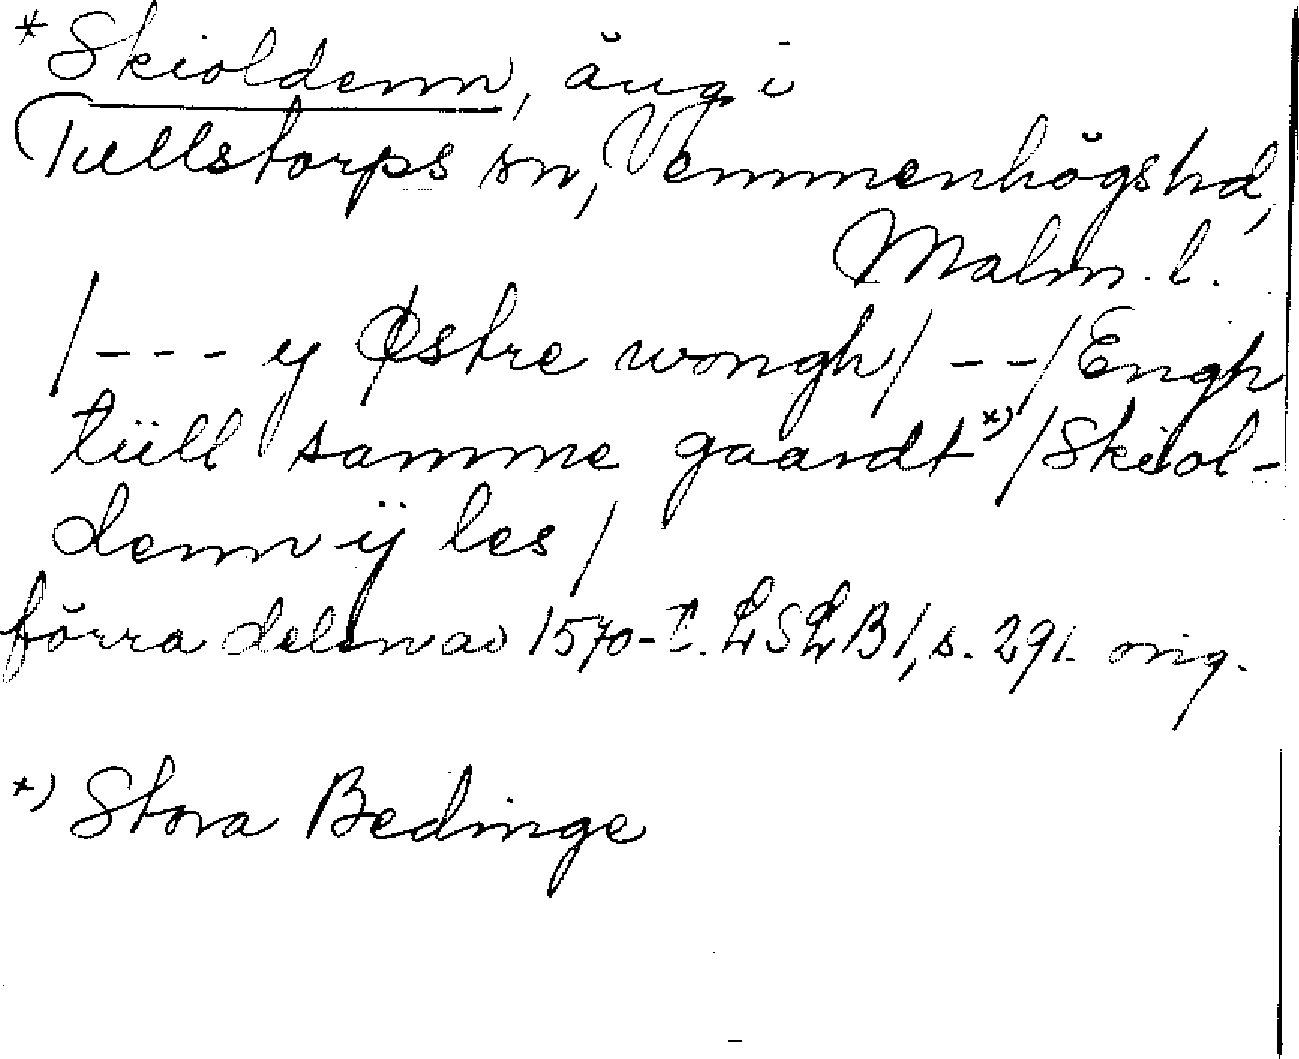 *Skioldenn, äng i
Tullstorps sn, Vemmenhögshd,
Malm. l.
/--- y Østre wongh/ --/Engh
tüll samme gaardt*)/Skiol-
denn ÿ les/
förra delen av 1570-t. LSLB1, s. 291. orig.
*) Stora Bedinge